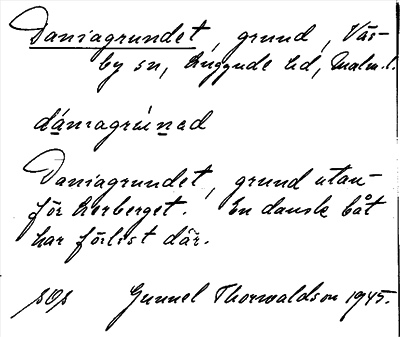 Daniagrundet, grund, Väs-
by sn, Luggude hd, Malm. l.
dániagrúnad
Daniagrundet, grund utan-
för Lerberget. En dansk båt
har förlist där.
Gunnel Thorwaldson 1945.